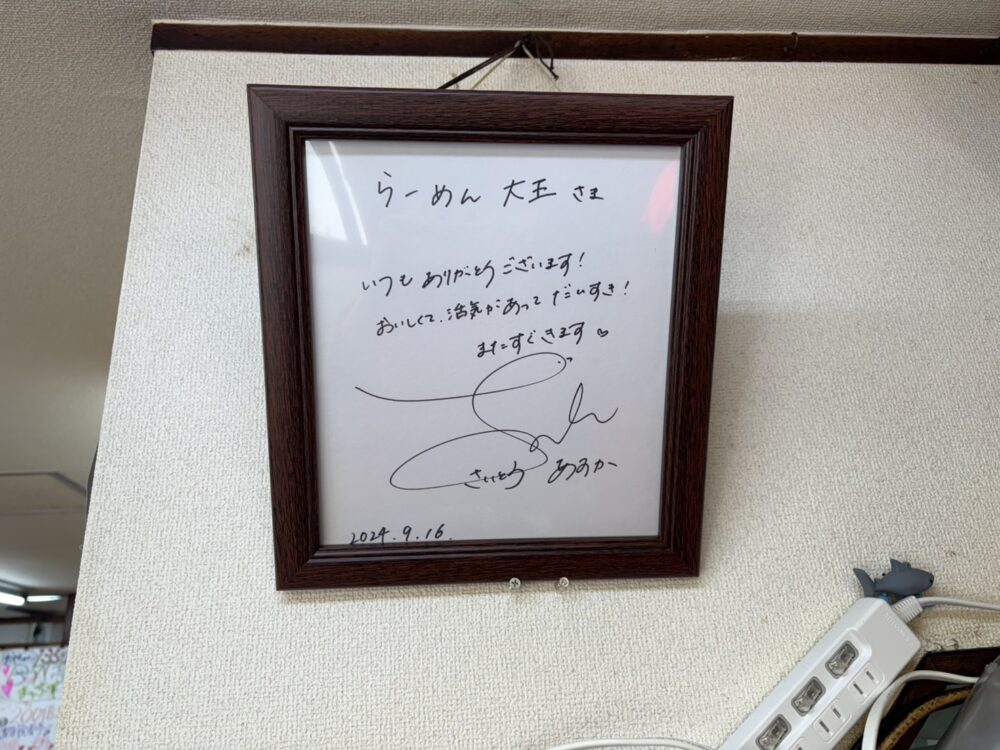 らーめん 大王 さま
いつも ありがとう ございます!
おいしくて、活気があって だいすき!
またすぐきます♡
さいとう あすか
2024.9.16.